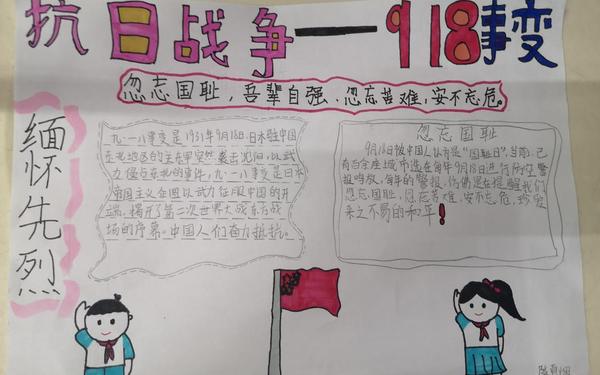 抗日战争——918事变
忽忘国耻,吾辈自强。忽忘苦难,安不忘危。
缅怀先烈
九·一八事变是1931年9月18日,日本驻中国
东北地区的关东军突然袭击沈阳,以武
力侵占东北的事件。九·一八事变是日本
帝国主义企图以武力征服中国的开
端,揭开了第二次世界大战东方战
场的序幕。中国人们奋力抵抗。
忽忘国耻
9月18日被中国人认为是“国耻日”,当前,已
有百余座城市选在每年9月18日进行防空警
报鸣放,每年的警报,仿佛是在提醒我们
忽忘国耻,忽忘苦难,安不忘危,珍爱
来之不易的和平!